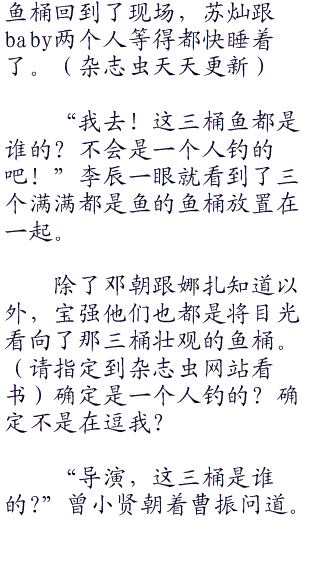 鱼桶回到了现场，苏灿跟
baby两个人等得都快睡着
了。（杂志虫天天更新）
“我去！这三桶鱼都是
谁的？不会是一个人钓的
吧！”李辰一眼就看到了三
个满满都是鱼的鱼桶放置在
一起。
除了邓朝跟娜扎知道以
外，宝强他们也都是将目光
看向了那三桶壮观的鱼桶。
（请指定到杂志虫网站看
书）确定是一个人钓的？确
定不是在逗我？
“导演，这三桶是谁
的?”曾小贤朝着曹振问道。